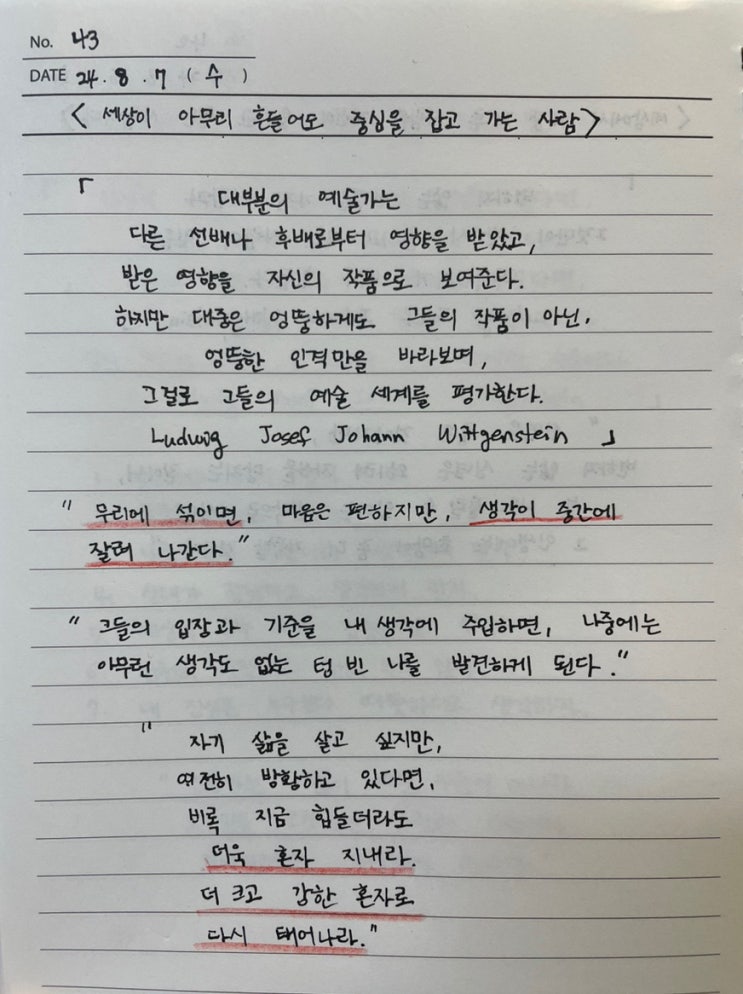 No. 43
DATE 24. 8. 7 ( 수 )
< 세상이 아무리 흔들어도 중심을 잡고 가는 사람 >
「 대부분의 예술가는
다른 선배나 후배로부터 영향을 받았고,
받은 영향을 자신의 작품으로 보여준다.
하지만 대중은 엉뚱하게도 그들의 작품이 아닌,
엉뚱한 인격만을 바라보며,
그걸로 그들의 예술 세계를 평가한다.
Ludwig Josef Johann Wittgenstein 」
" 무리에 섞이면, 마음은 편하지만, 생각이 중간에
잘려 나간다."
" 그들의 입장과 기준을 내 생각에 주입하면, 나중에는
아무런 생각도 없는 텅 빈 나를 발견하게 된다."
" 자기 삶을 살고 싶지만,
여전히 방황하고 있다면,
비록 지금 힘들더라도
더욱 혼자 지내라.
더 크고 강한 혼자로
다시 태어나라."